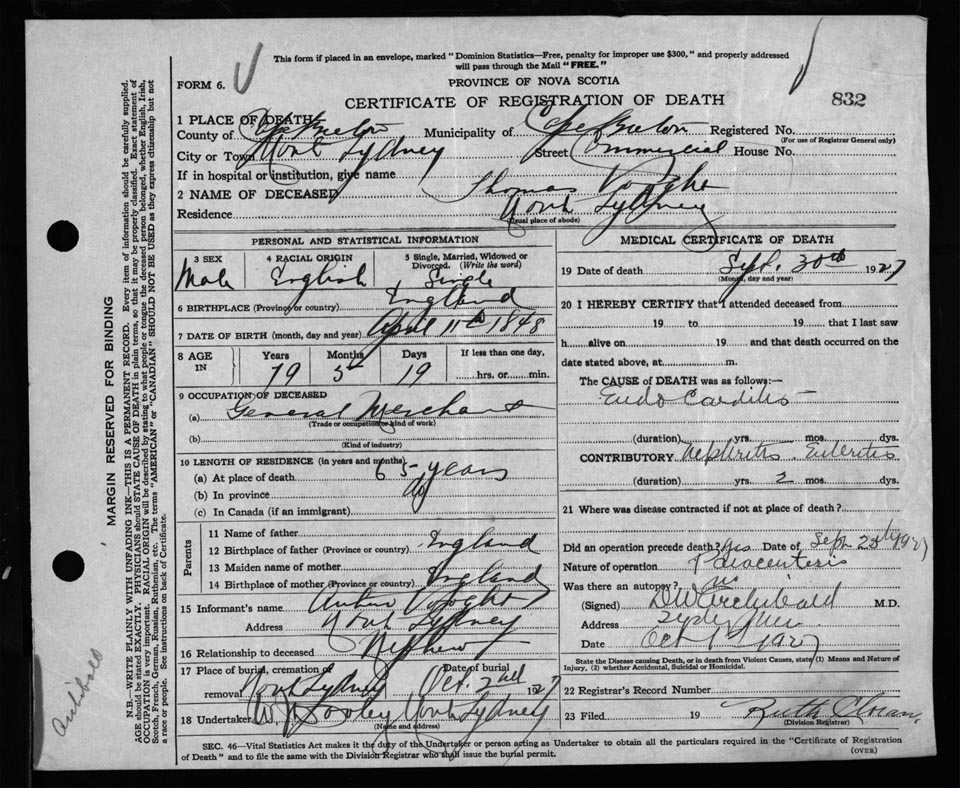 This form if placed in an envelope, marked "Dominion Statistics—Free, penalty for improper use $300," and properly addressed
will pass through the Mail "FREE."
FORM 6.
PROVINCE OF NOVA SCOTIA
CERTIFICATE OF REGISTRATION OF DEATH
832
1 PLACE OF DEATH
County of Cape Breton Municipality of Cape Breton Registered No.
(For use of Registrar General only)
City or Town North Sydney Street Commercial House No.
If in hospital or institution, give name
2 NAME OF DECEASED Thomas
Residence North Sydney
(Usual place of abode)
PERSONAL AND STATISTICAL INFORMATION
3 SEX 4 RACIAL ORIGIN 5 Single, Married, Widowed or Divorced. (Write the word)
Male English Single
6 BIRTHPLACE (Province or country) England
7 DATE OF BIRTH (month, day and year) April 11th 1848
8 AGE IN Years Months Days If less than one day,
79 5 19 hrs. or min.
9 OCCUPATION OF DECEASED
(a) General Merchant
(Trade or occupation or kind of work)
(b)
(Kind of industry)
10 LENGTH OF RESIDENCE (in years and months)
(a) At place of death 65 years
(b) In province do
(c) In Canada (if an immigrant)
Parents
11 Name of father
12 Birthplace of father (Province or country) England
13 Maiden name of mother
14 Birthplace of mother (Province or country) England
15 Informant's name Arthur
Address North Sydney
16 Relationship to deceased Nephew
17 Place of burial, cremation or removal North Sydney Date of burial Oct. 2nd 1927
18 Undertaker North Sydney
(Name and address)
MEDICAL CERTIFICATE OF DEATH
19 Date of death Sept. 30th 1927
(Month, day and year)
20 I HEREBY CERTIFY that I attended deceased from
19 to 19 that I last saw
h alive on 19 and that death occurred on the
date stated above, at m.
The CAUSE of DEATH was as follows:—
Endo Carditis
(duration) yrs. mos. dys.
CONTRIBUTORY Nephritis Enteritis
(duration) yrs. 2 mos. dys.
21 Where was disease contracted if not at place of death?
Did an operation precede death? Yes Date of Sept 25th 1927
Nature of operation Paracentesis
Was there an autopsy? no
(Signed) Archibald M.D.
Address Sydney Mines
Date Oct 1 1927
State the Disease causing Death, or in death from Violent Causes, state (1) Means and Nature of
Injury, (2) whether Accidental, Suicidal or Homicidal.
22 Registrar's Record Number
23 Filed 19 Ruth
(Division Registrar)
SEC. 46—Vital Statistics Act makes it the duty of the Undertaker or person acting as Undertaker to obtain all the particulars required in the "Certificate of Registration
of Death" and to file the same with the Division Registrar who shall issue the burial permit.
(OVER)
MARGIN RESERVED FOR BINDING
N.B.—WRITE PLAINLY WITH UNFADING INK—THIS IS A PERMANENT RECORD. Every item of information should be carefully supplied.
AGE should be stated EXACTLY. PHYSICIANS should STATE CAUSE OF DEATH in plain terms, so that it may be properly classified. Exact statement of
OCCUPATION is very important. RACIAL ORIGIN will be described by stating to what people or tongue the deceased person belonged, whether English, Irish,
Scotch, French, German, Russian, Ruthenian, etc. The terms "AMERICAN" or "CANADIAN" SHOULD NOT BE USED as they express citizenship but not
a race or people. See instructions on back of Certificate.